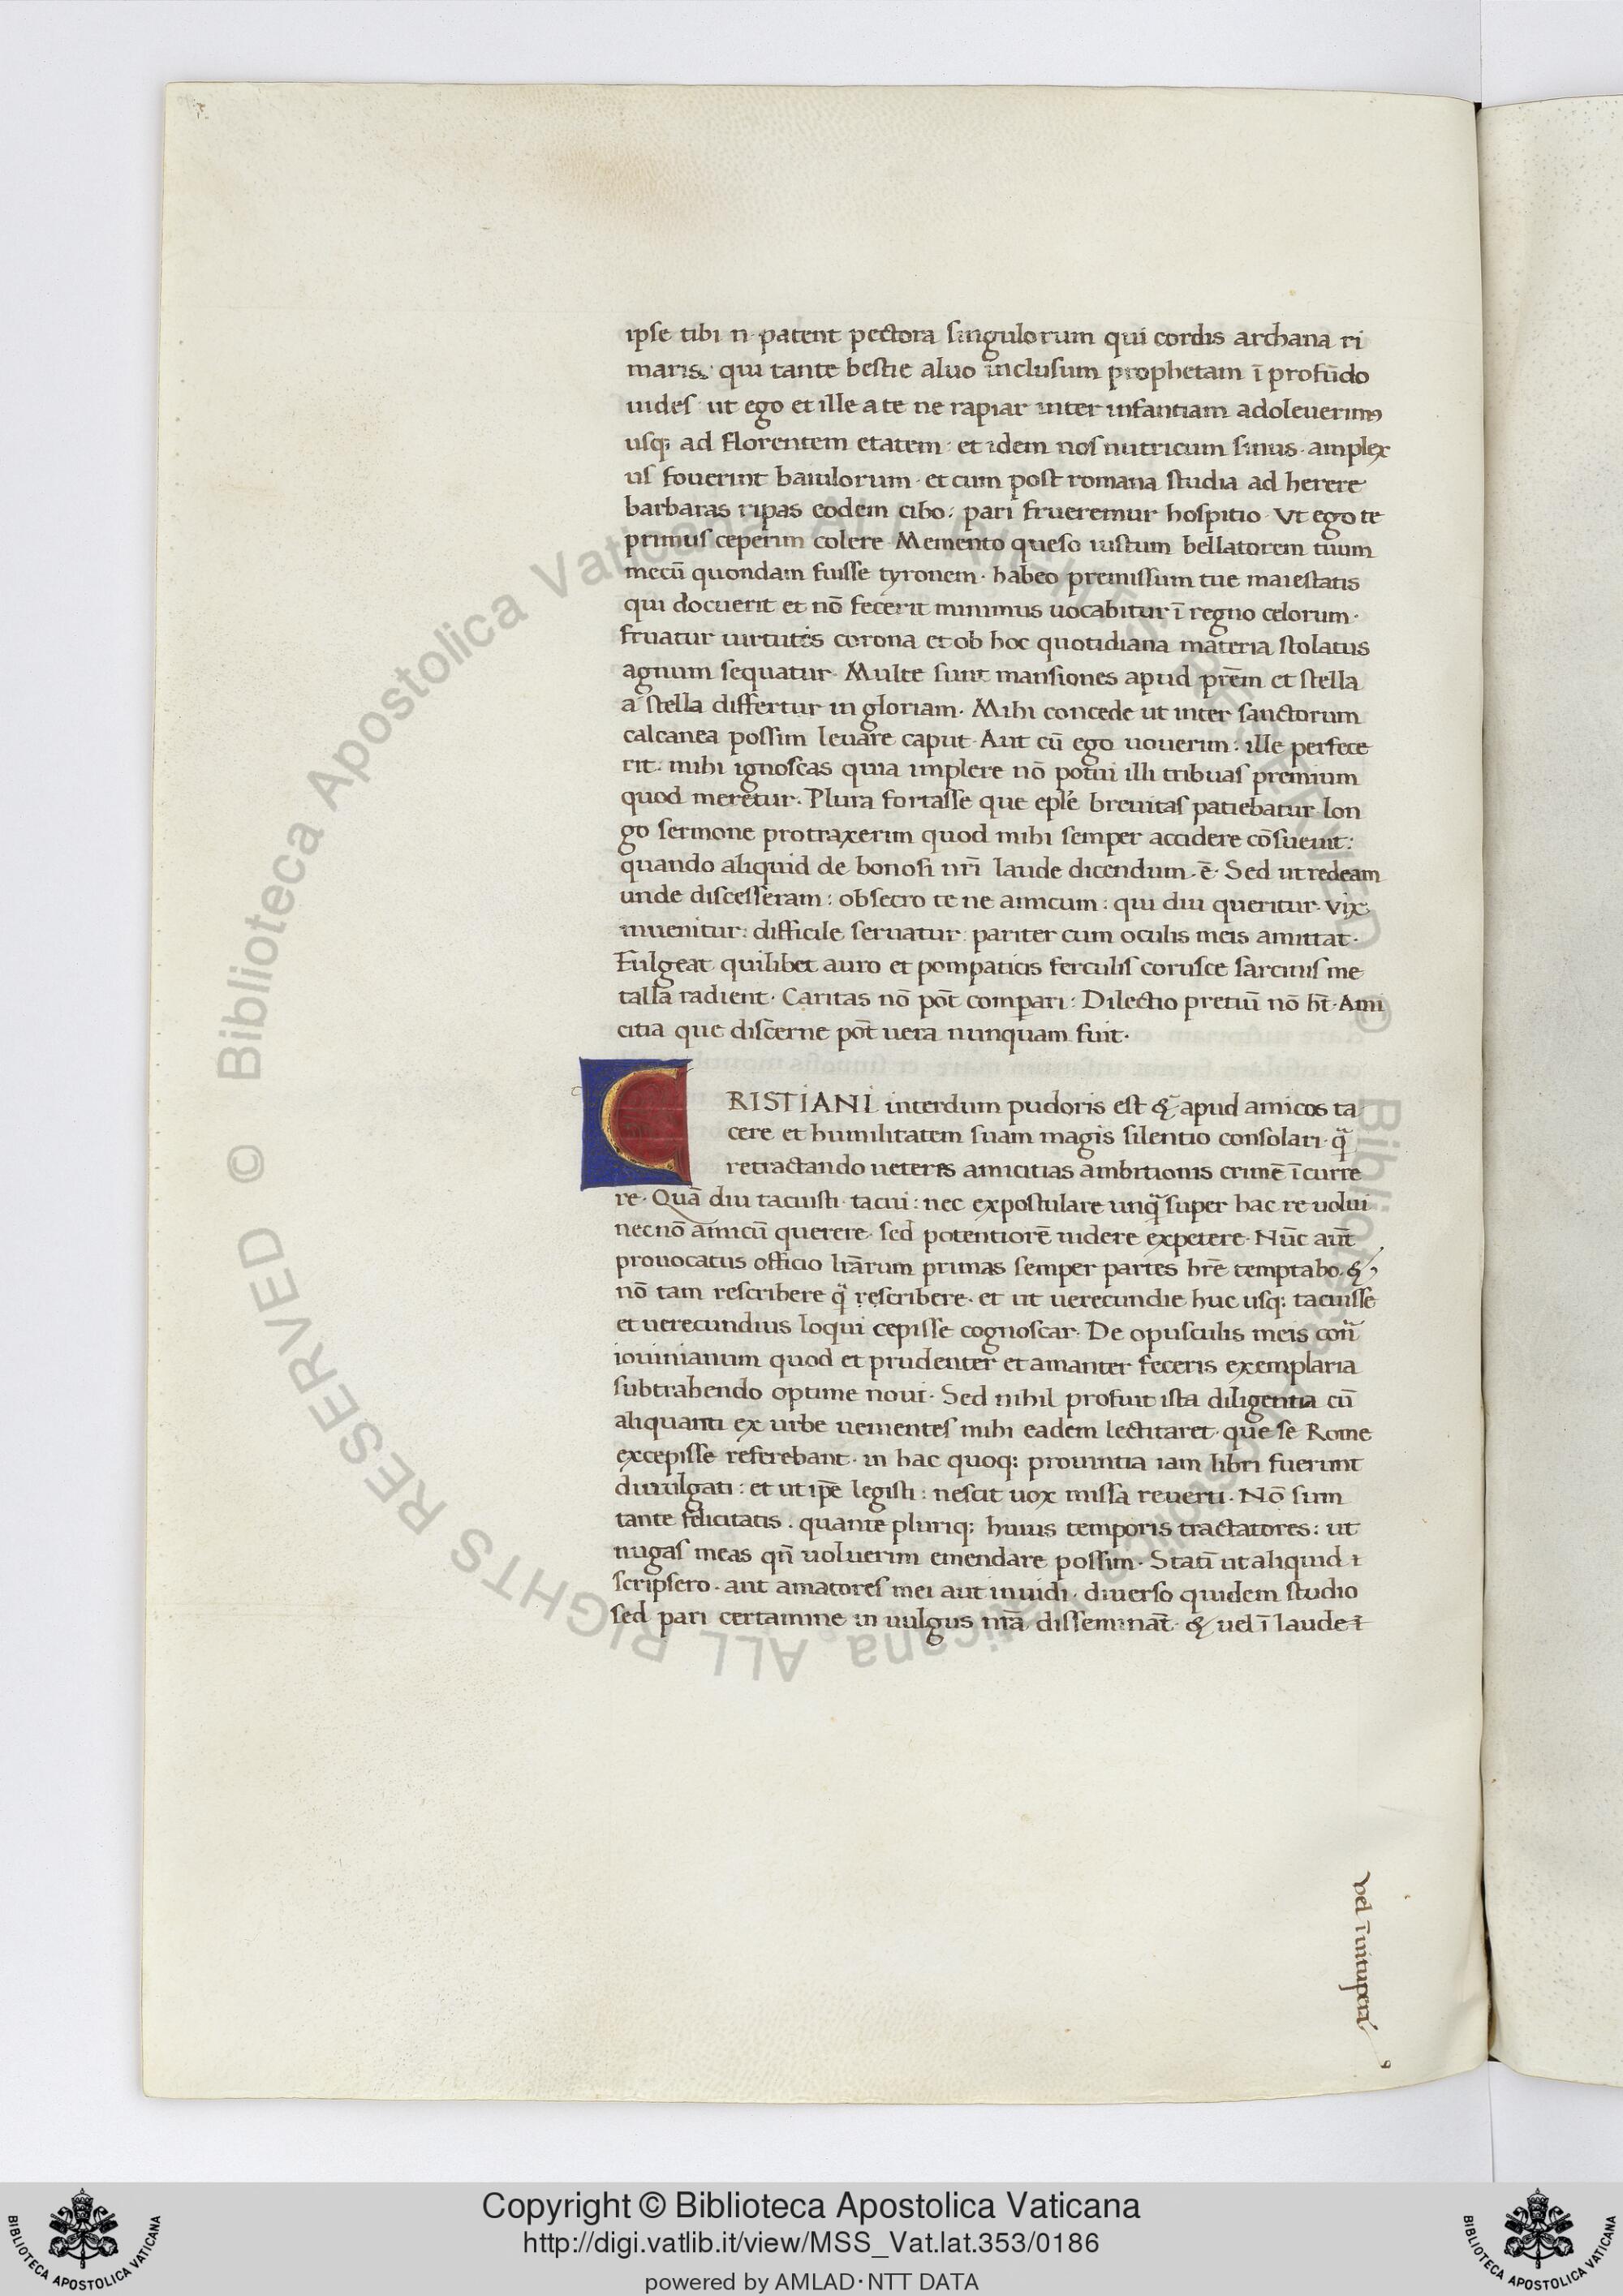 ipse tibi n· patent pectora singulorum qui cordis archana ri
maris· qui tante bestie aluo inclusum prophetam ī profūdo
uides· ut ego et ille a te ne rapiar inter infantiam adoleuerimꝰ
usq; ad florentem etatem· et idem nos nutricum sinus· amplex
us fouerint baiulorum· et cum post romana studia ad herere
barbaras ripas eodem cibo: pari frueremur hospitio· Vt ego te
primus ceperim colere· Memento queso iustum bellatorem tuum
mecū quondam fuisse tyronem· habeo premissum tue maiestatis
qui docuerit et nō fecerit minimus uocabitur ī regno celorum·
fruatur uirtutis corona et ob hoc quotidiana materia stolatus
agnum sequatur· Multe sunt mansiones apud prēm et stella
a stella differtur in gloriam· Mihi concede ut inter sanctorum
calcanea possim leuare caput· Aut cū ego uouerim: ille perfece
rit: mihi ignoscas quia implere nō potui illi tribuas premium
quod meretur· Plura fortasse que eple breuitas patiebatur· lon
go sermone protraxerim quod mihi semper accidere cōsueuit:
quando aliquid de bonosi nrī laude dicendum· ē· Sed ut redeam
unde discesseram: obsecro te ne amicum: qui diu queritur· vix
inuenitur: difficile seruatur: pariter cum oculis meis amittat·
Fulgeat quilibet auro et pompaticis ferculis corusce sarcinis me
talla radient· Caritas nō pōt compari: Dilectio pretiū nō ħt· Ami
citia que discerne pōt uera nunquam fuit·
CRISTIANI interdum pudoris est & apud amicos ta
cere et humilitatem suam magis silentio consolari· q̄
retractando ueteres amicitias ambitionis crimē īcurre
re· Quā diu tacuisti· tacui: nec expostulare unq̄ super hac re uolui
nec nō amicū querere· sed potentiorē uidere expetere· Nūc aūt
prouocatus officio lrārum primas semper partes hrē temptabo· &
nō tam rescribere q̄ rescribere· et ut uerecundie huc usq; tacuisse
et uerecundius loqui cepisse cognoscar· De opusculis meis con̄
iouinianum quod et prudenter et amanter feceris exemplaria
subtrahendo optime noui· Sed nihil profuit ista diligentia cū
aliquanti ex urbe uenientes mihi eadem lectitaret· que se Rome
excepisse referebant· in hac quoq; prouintia iam libri fuerunt
diuulgati: et ut ipē legisti: nescit uox missa reuerti· Nō sum
tante felicitatis· quante pluriq; huius temporis tractatores: ut
nugas meas qn̄ uoluerim emendare possim· Statī ut aliquid
scripsero· aut amatores mei aut inuidi· diuerso quidem studio
sed pari certamine in uulgus nrā disseminat̄· & uel ī laude
vel ī uitupera
© Biblioteca Apostolica Vaticana ALL RIGHTS RESERVED © Biblioteca Apostolica Vaticana ALL RIGHTS RESERVED
Copyright © Biblioteca Apostolica Vaticana
http://digi.vatlib.it/view/MSS_Vat.lat.353/0186
powered by AMLAD·NTT DATA
BIBLIOTECA APOSTOLICA VATICANA
BIBLIOTECA APOSTOLICA VATICANA